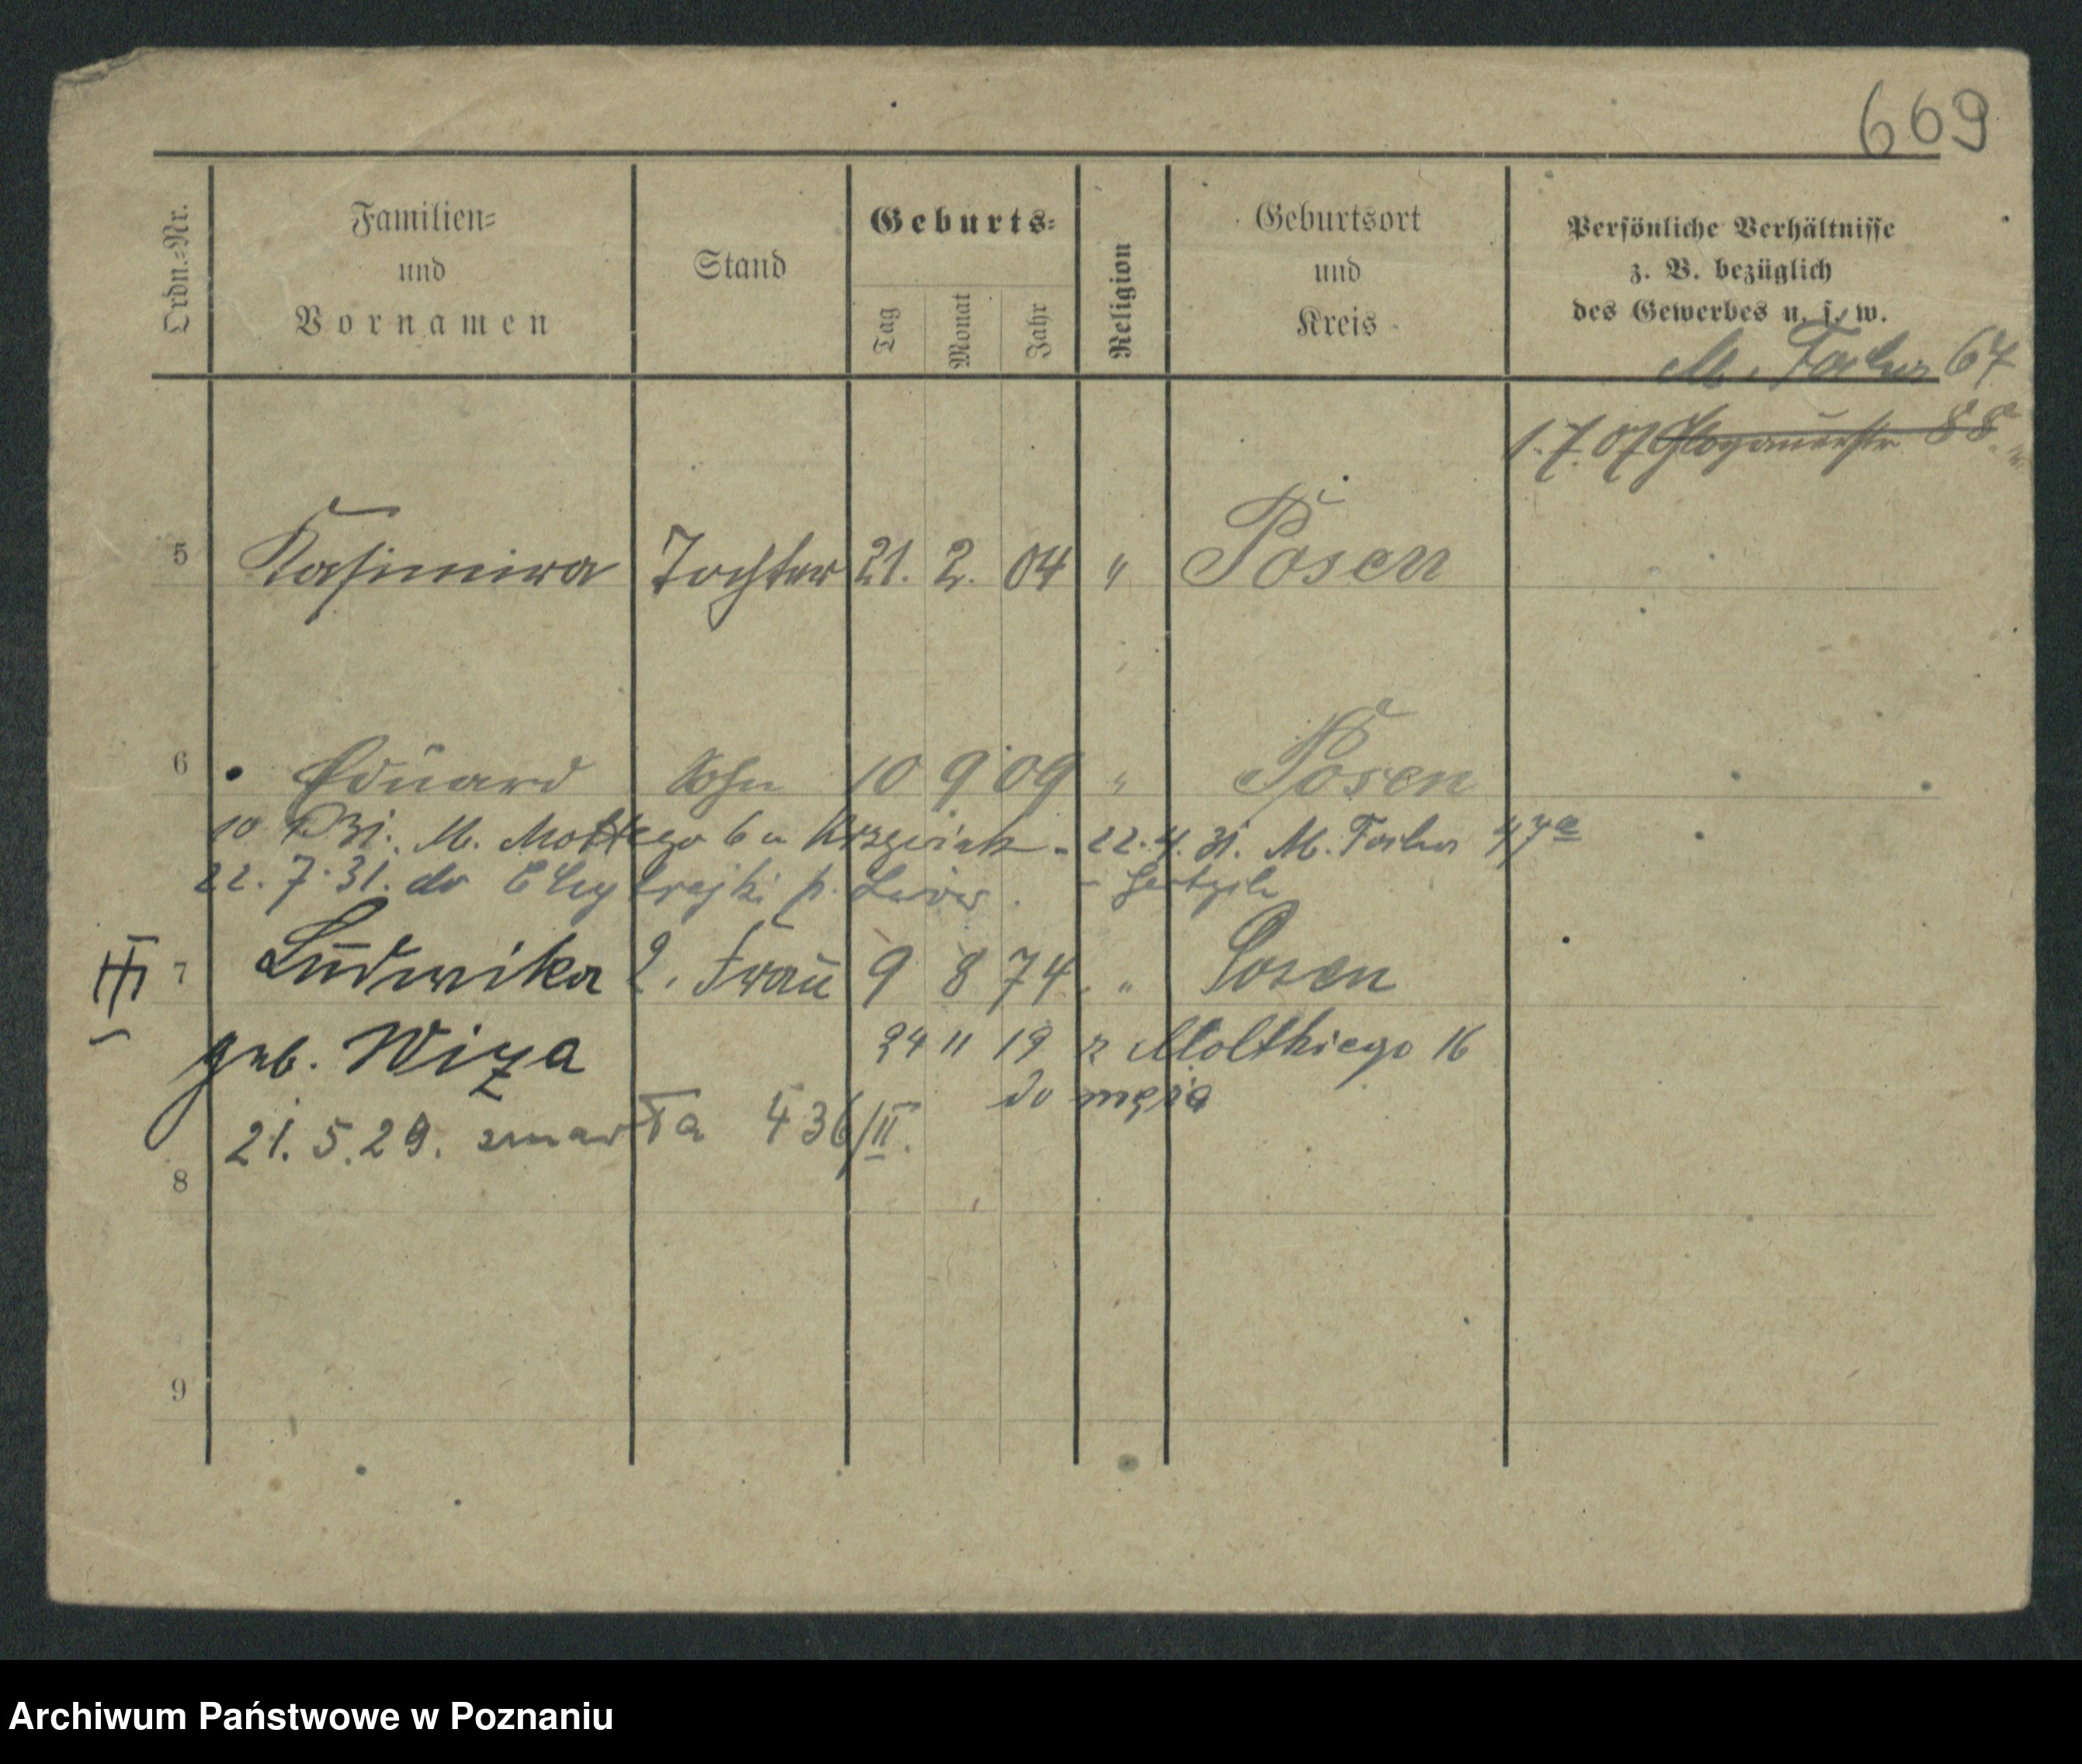 669
Ordn.-Nr.
Familien-
und
Vornamen
Stand
Geburts-
Tag
Monat
Jahr
Religion
Geburtsort
und
Kreis
Persönliche Verhältnisse
z. B. bezüglich
des Gewerbes u. s. w.
M. Focha 67
1.7.07 Glogauerstr 88
5 Kasimira Tochter 21. 2. 04 " Posen
6 Eduard Sohn 10 9 09 " Posen
10 31. M. Mottego 6 u - 22.4.31. M. Focha 47a
22.7.31. do p. Lwów.
III 7 Ludwika 2. Frau 9 8 74 " Posen
geb. Wiza 24 11 19 z Molthiego 16
do męża
21.5.29. zmarła 436/II.
8
9
Archiwum Państwowe w Poznaniu